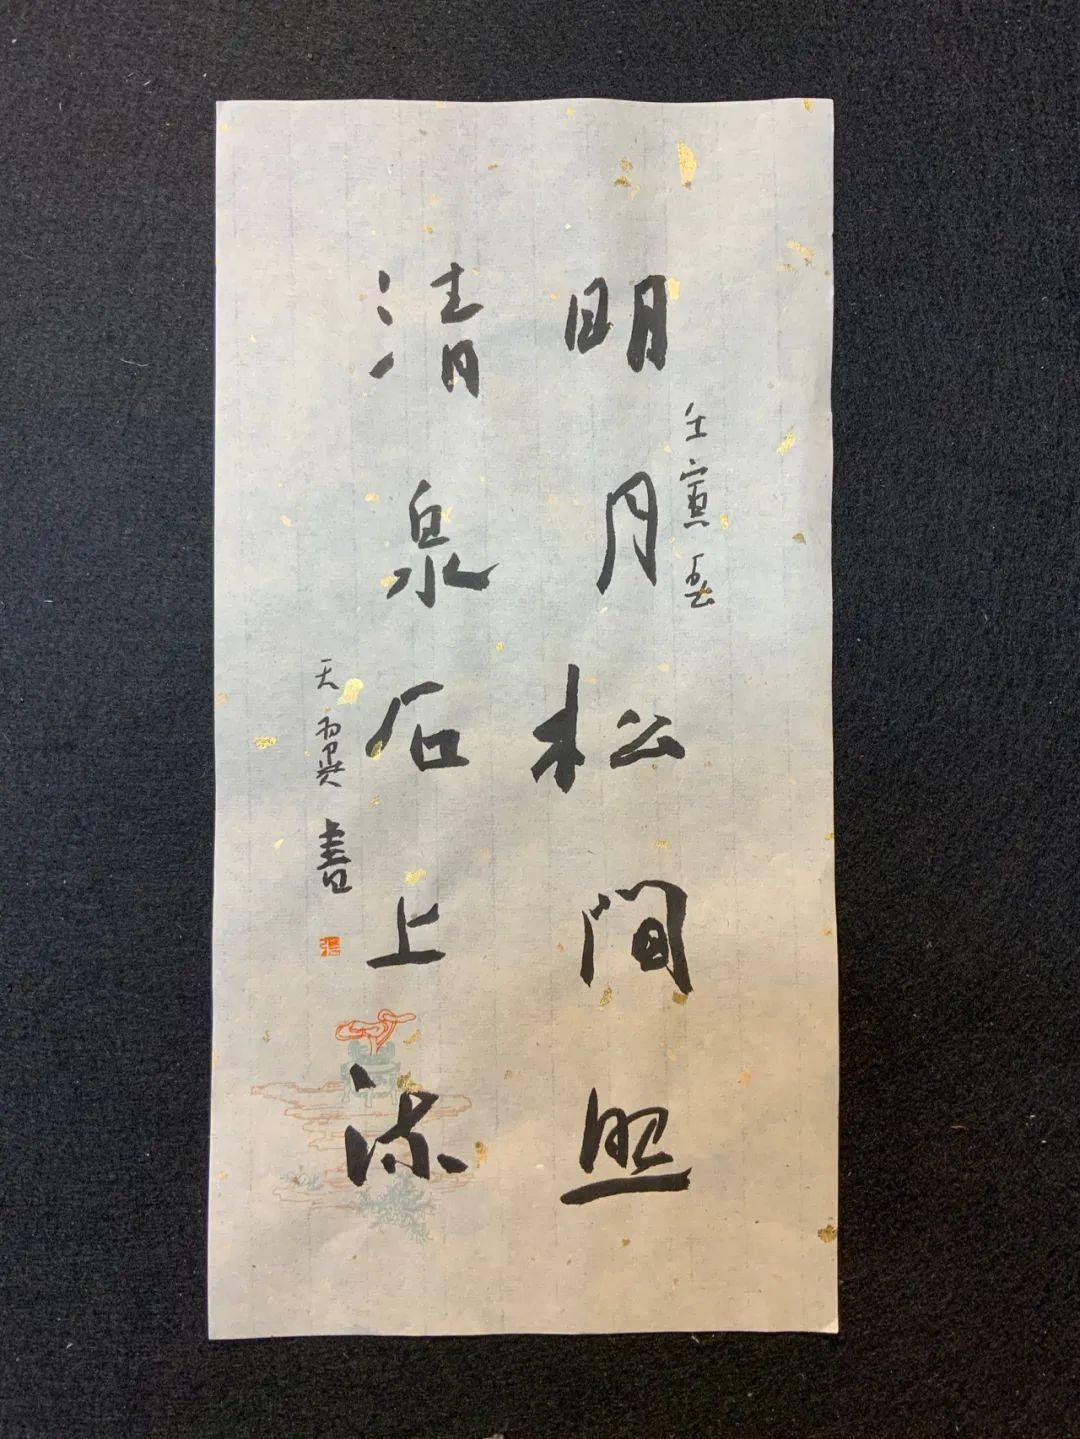 明月松间照
壬寅春
清泉石上流
天翼书
張